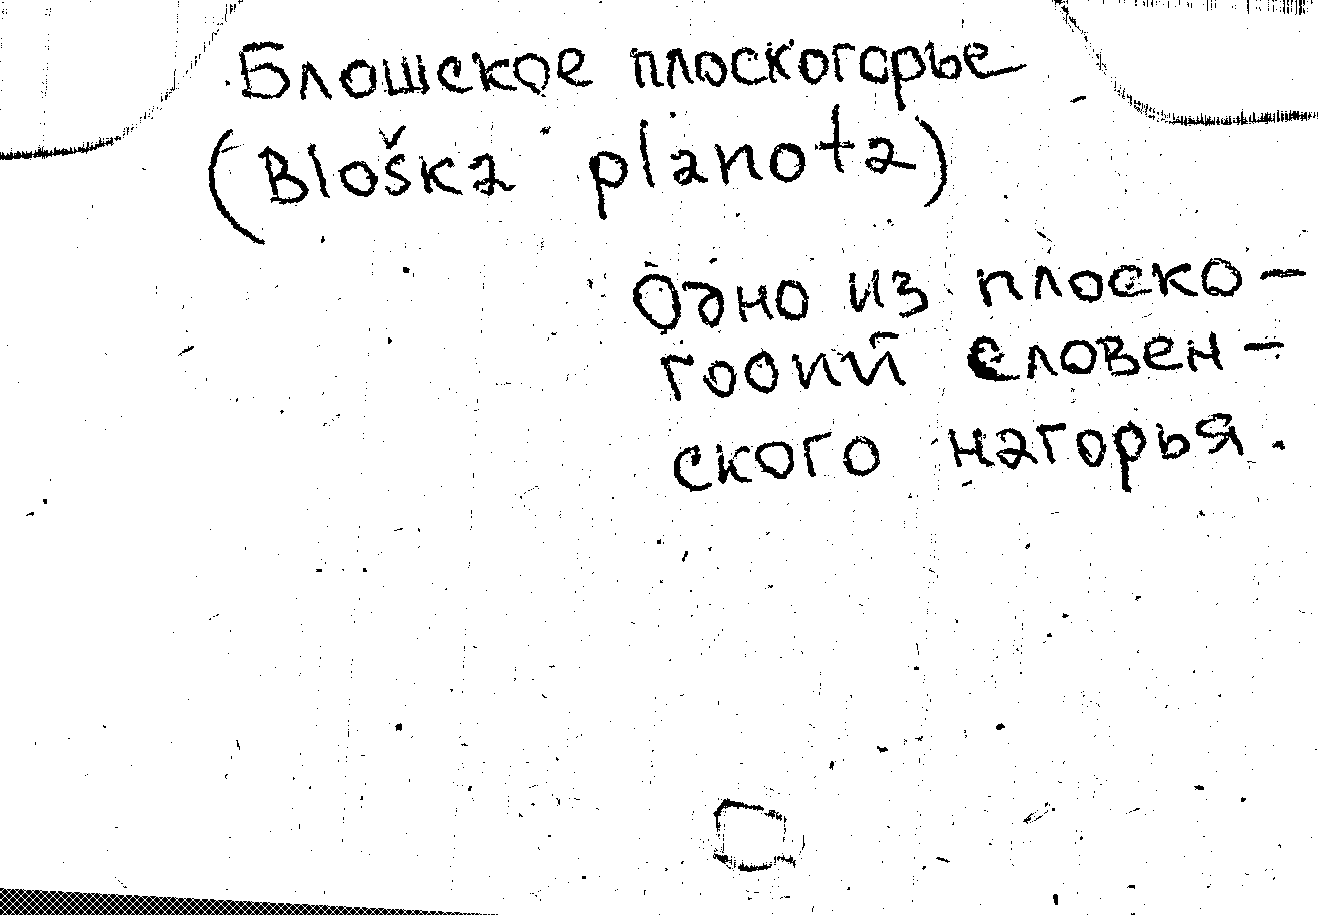 Блошское плоскогорье
(Bloška planota)
Одно из плоско-
гооий словен-
ского нагорья.